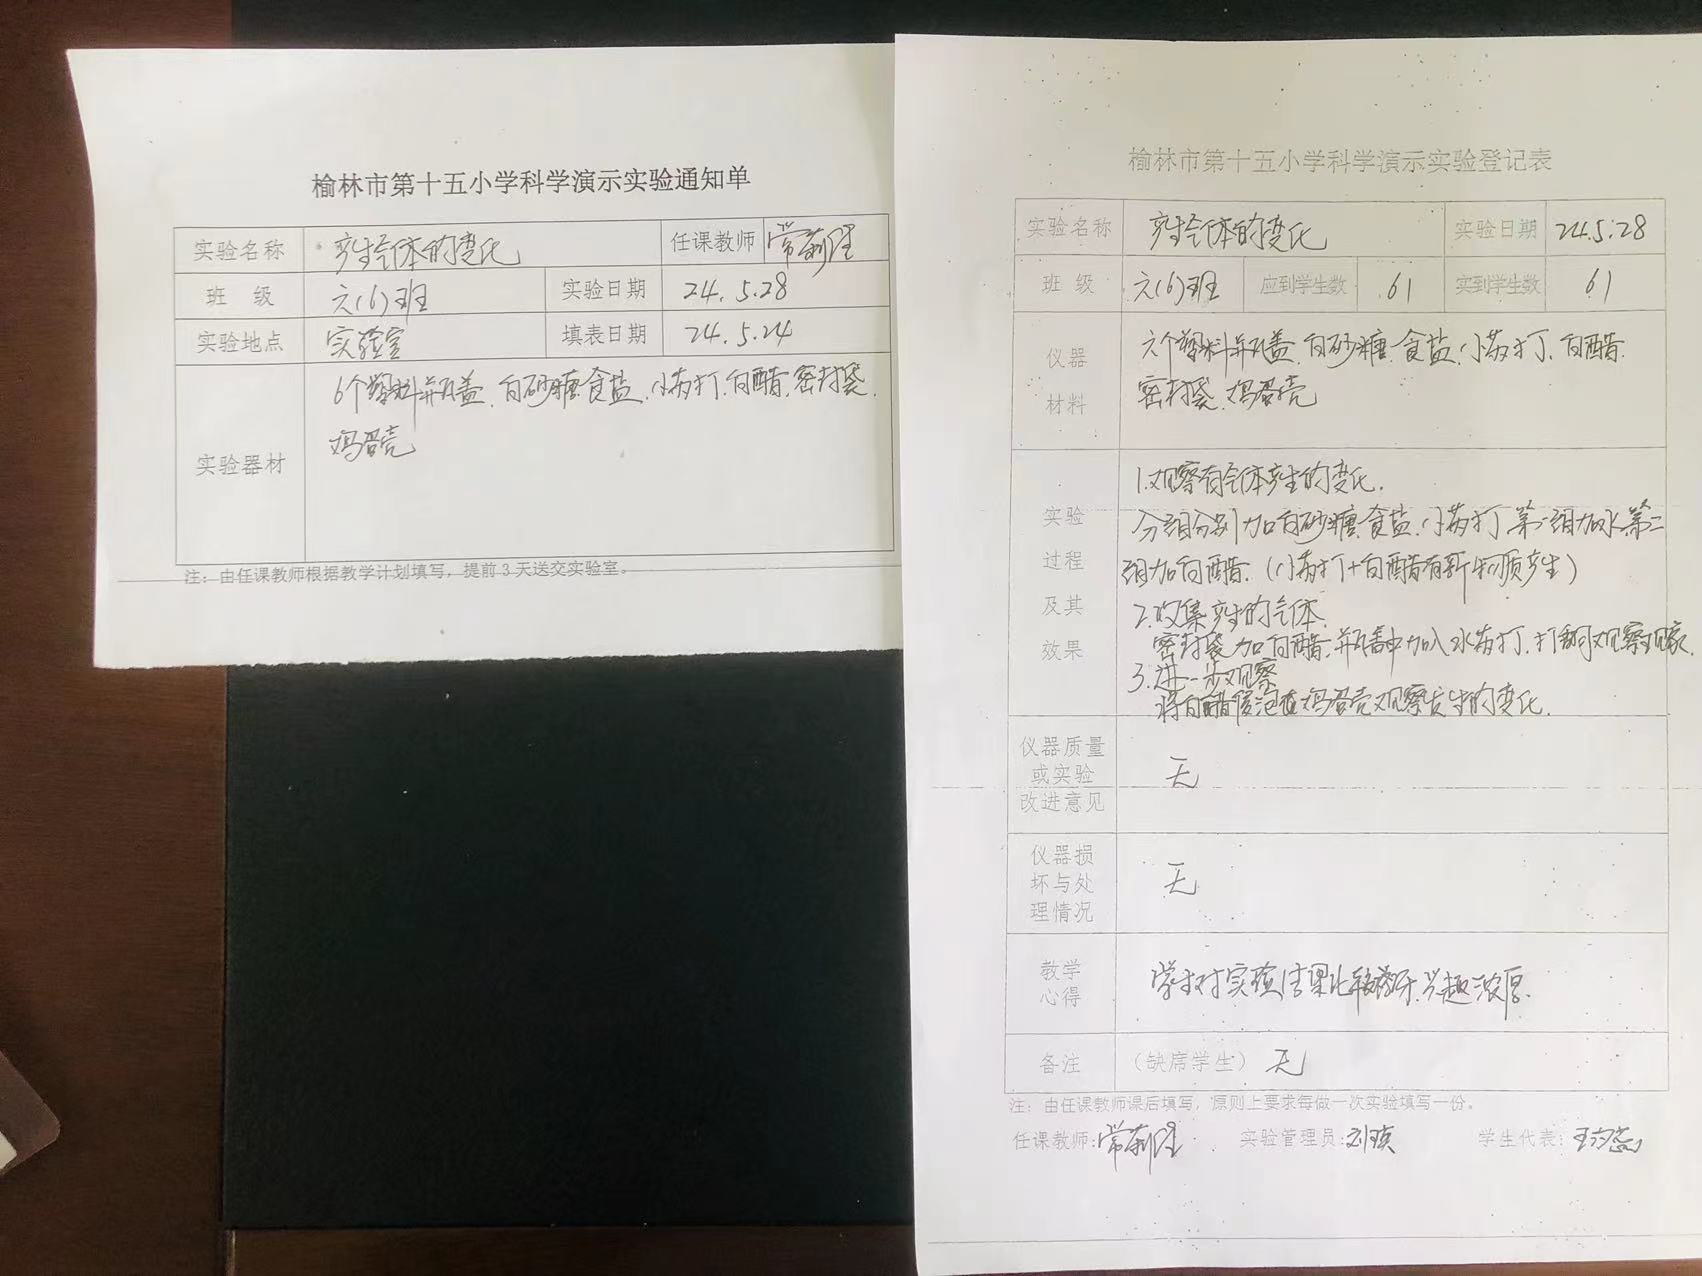 榆林市第十五小学科学演示实验通知单
实验名称 产生气体的变化 任课教师 常莉
班 级 六(6)班 实验日期 24.5.28
实验地点 实验室 填表日期 24.5.24
实验器材 6个塑料瓶盖.白砂糖.食盐.小苏打.白醋.密封袋.
鸡蛋壳
注:由任课教师根据教学计划填写,提前3天送交实验室。
榆林市第十五小学科学演示实验登记表
实验名称 产生气体的变化 实验日期 24.5.28
班 级 六(6)班 应到学生数 61 实到学生数 61
仪器材料 六个塑料瓶盖.白砂糖.食盐.小苏打.白醋.
密封袋.鸡蛋壳
实验过程及其效果 1.观察有气体产生的变化.
分组分别加白砂糖.食盐.小苏打第一组加水.第二
组加白醋.(小苏打+白醋有新物质产生)
2.收集产生的气体.
密封袋加白醋.瓶盖中加入小苏打.打翻观察现象.
3.进一步观察
将白醋浸泡鸡蛋壳观察发生的变化.
仪器质量或实验改进意见 无
仪器损坏与处理情况 无
教学心得 学生对实验结果比较好.兴趣浓厚.
备注 (缺席学生) 无
注:由任课教师课后填写,原则上要求每做一次实验填写一份。
任课教师:常莉 实验管理员:刘瑛 学生代表:王